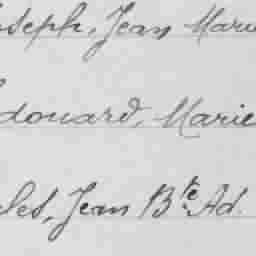 oseph, Jean Marie
douard, Marie
les, Jean Bte Ad.